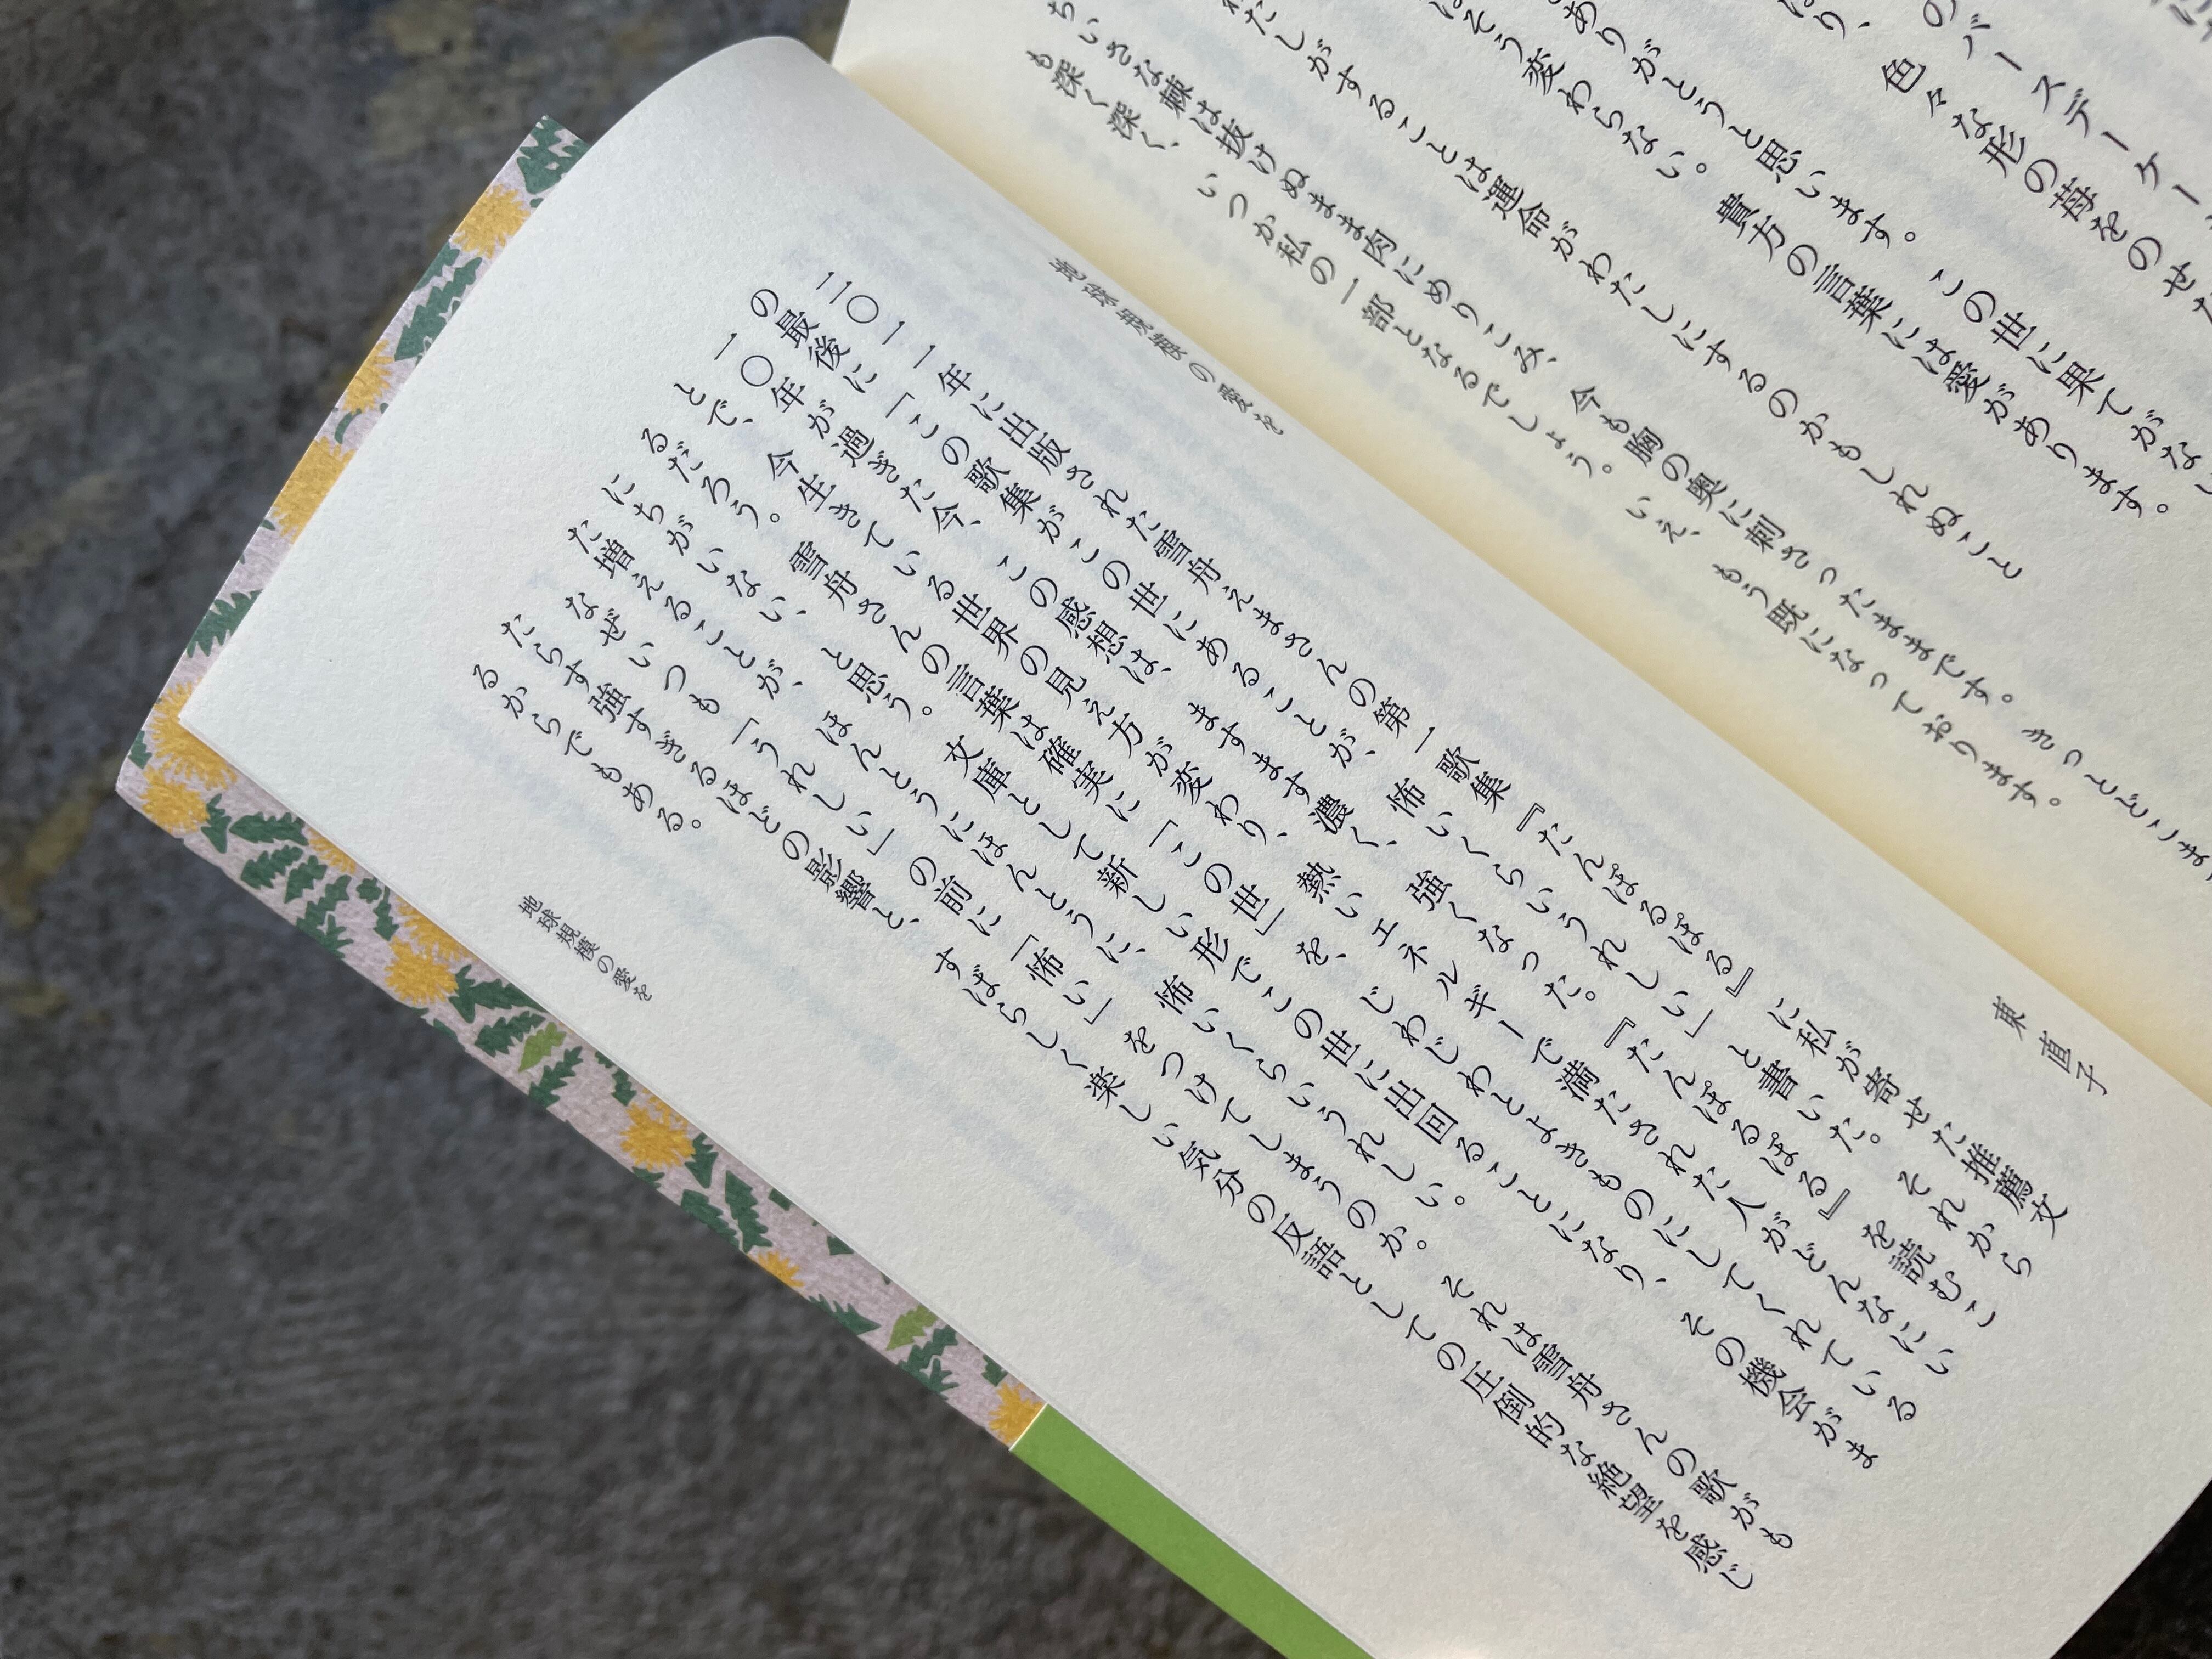 のバースデーケー
り、色々な形の母をのせた
ありがとうと思います。この世に果てがな
はそう変わらない。貴方の言葉には愛があります。
たしがすることは運命がわたしにするのかもしれぬこと
ちいさな棘は抜けぬまま肉にめりこみ、今も胸の奥に刺さったままです。きっとどこま
も深く深く、いつか私の一部となるでしょう。いえ、もう既になっております。
地球規模の愛を
東 直子
二〇一一年に出版された雪舟えまさんの第一歌集『たんぽるぽる』に私が寄せた推薦文
の最後に「この歌集がこの世にあることが、怖いくらいうれしい」と書いた。それから
一〇年が過ぎた今、この感想は、ますます濃く、強くなった。『たんぽるぽる』を読むこ
とで、今生きている世界の見え方が変わり、熱いエネルギーで満たされた人がどんなにい
るだろう。雪舟さんの言葉は確実に「この世」を、じわじわとよきものにしてくれている
にちがいない、と思う。文庫として新しい形でこの世に出回ることになり、その機会がま
た増えることが、ほんとうにほんとうに、怖いくらいうれしい。
なぜいつも「うれしい」の前に「怖い」をつけてしまうのか。それは雪舟さんの歌がも
たらす強すぎるほどの影響と、すばらしく楽しい気分の反語としての圧倒的な絶望を感じ
るからでもある。
地球規模の愛を